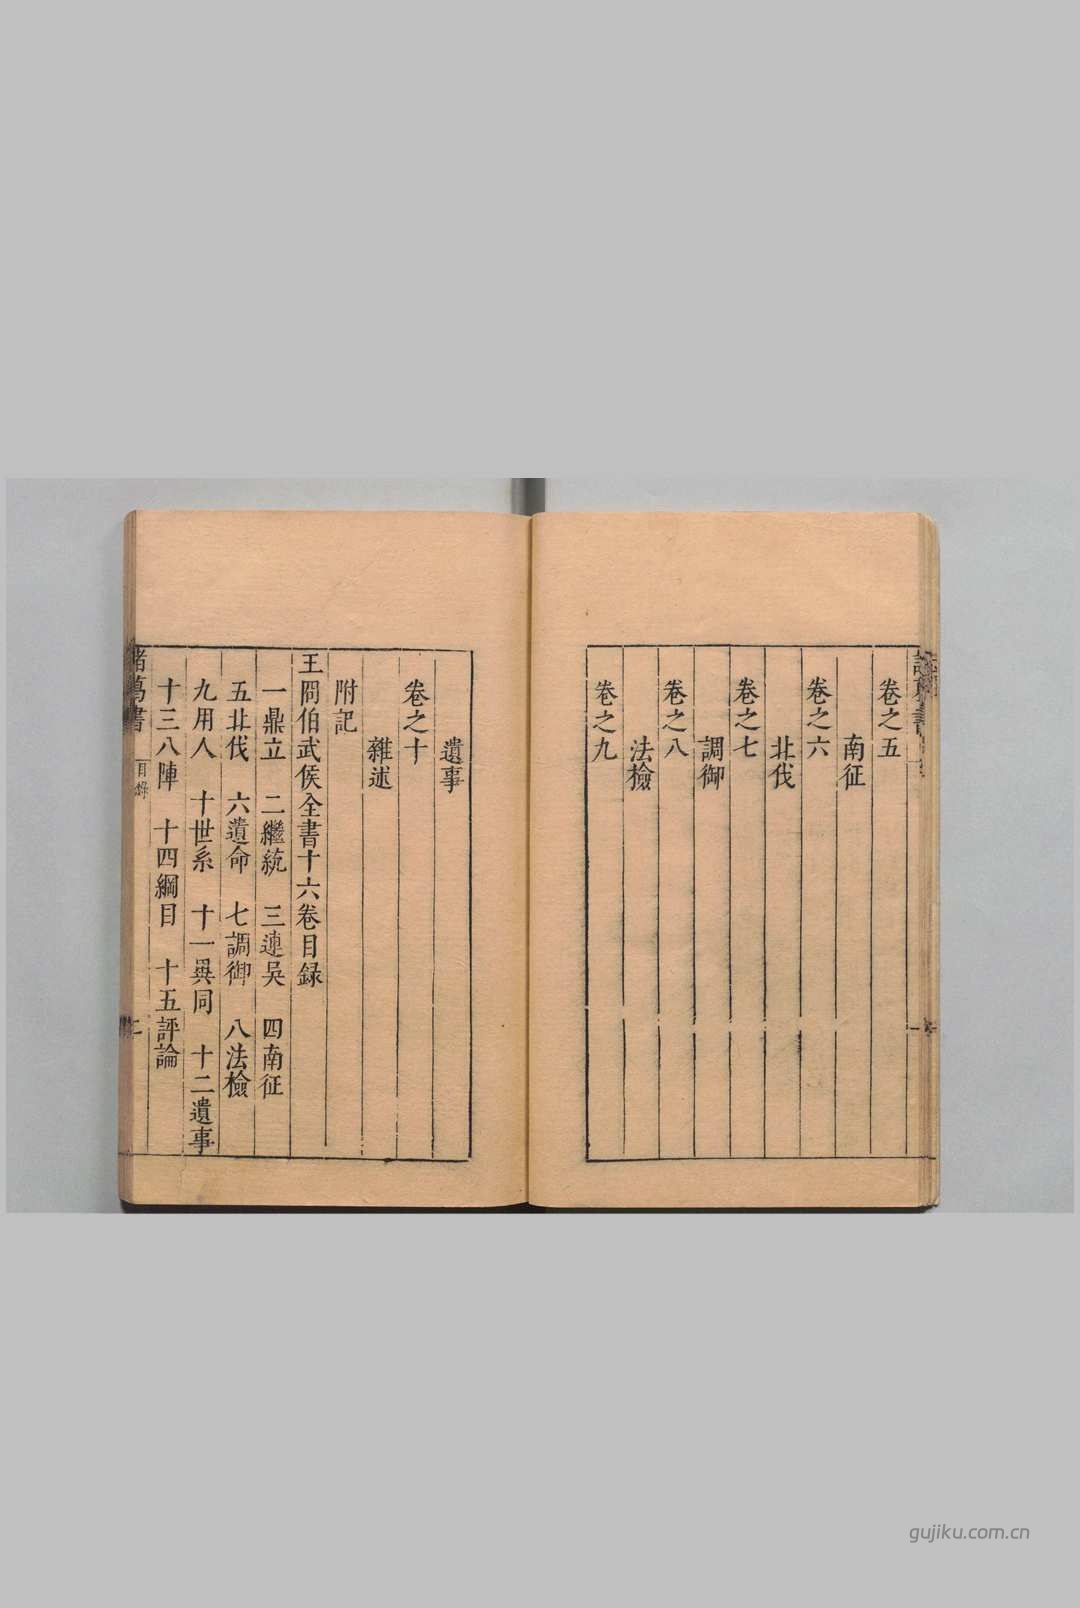 卷之五
南征
卷之六
北伐
卷之七
調御
卷之八
法檢
卷之九
遺事
卷之十
雜述
附記
王岡伯武侯全書十六卷目録
一鼎立　二繼統　三連吳　四南征
五北伐　六遺命　七調御　八法檢
九用人　十世系　十一異同　十二遺事
十三八陣　十四綱目　十五評論
諸葛書
目錄
二
gujiku.com.cn